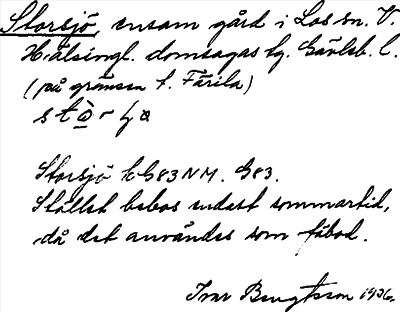 Storsjö, ensam gård i Los sn. V.
Hälsingl. domsagas tg. Gävleb. l.
(på gränsen t. Färila)
Storsjö EG83NM. G83.
Stället bebos endast sommartid,
då det användes som fäbod.
Ivar Bengtsson 1936.